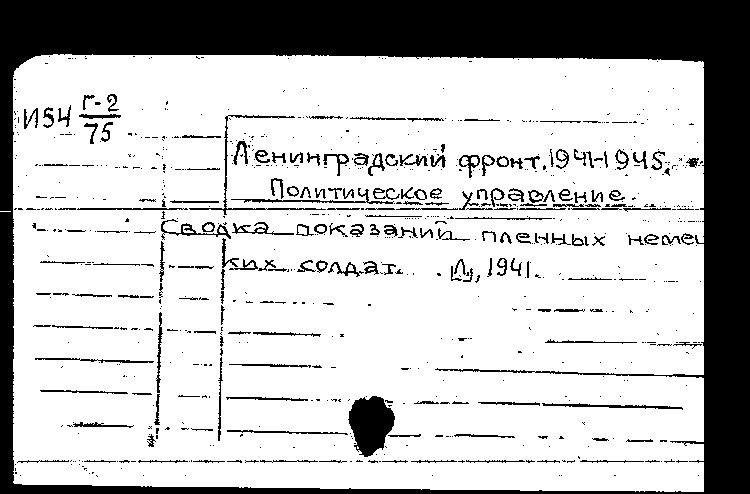 И54 Г-2
75
Ленинградский фронт. 1941-1945.
Политическое управление.
Сводка показаний пленных немец
ких солдат. [Л], 1941.